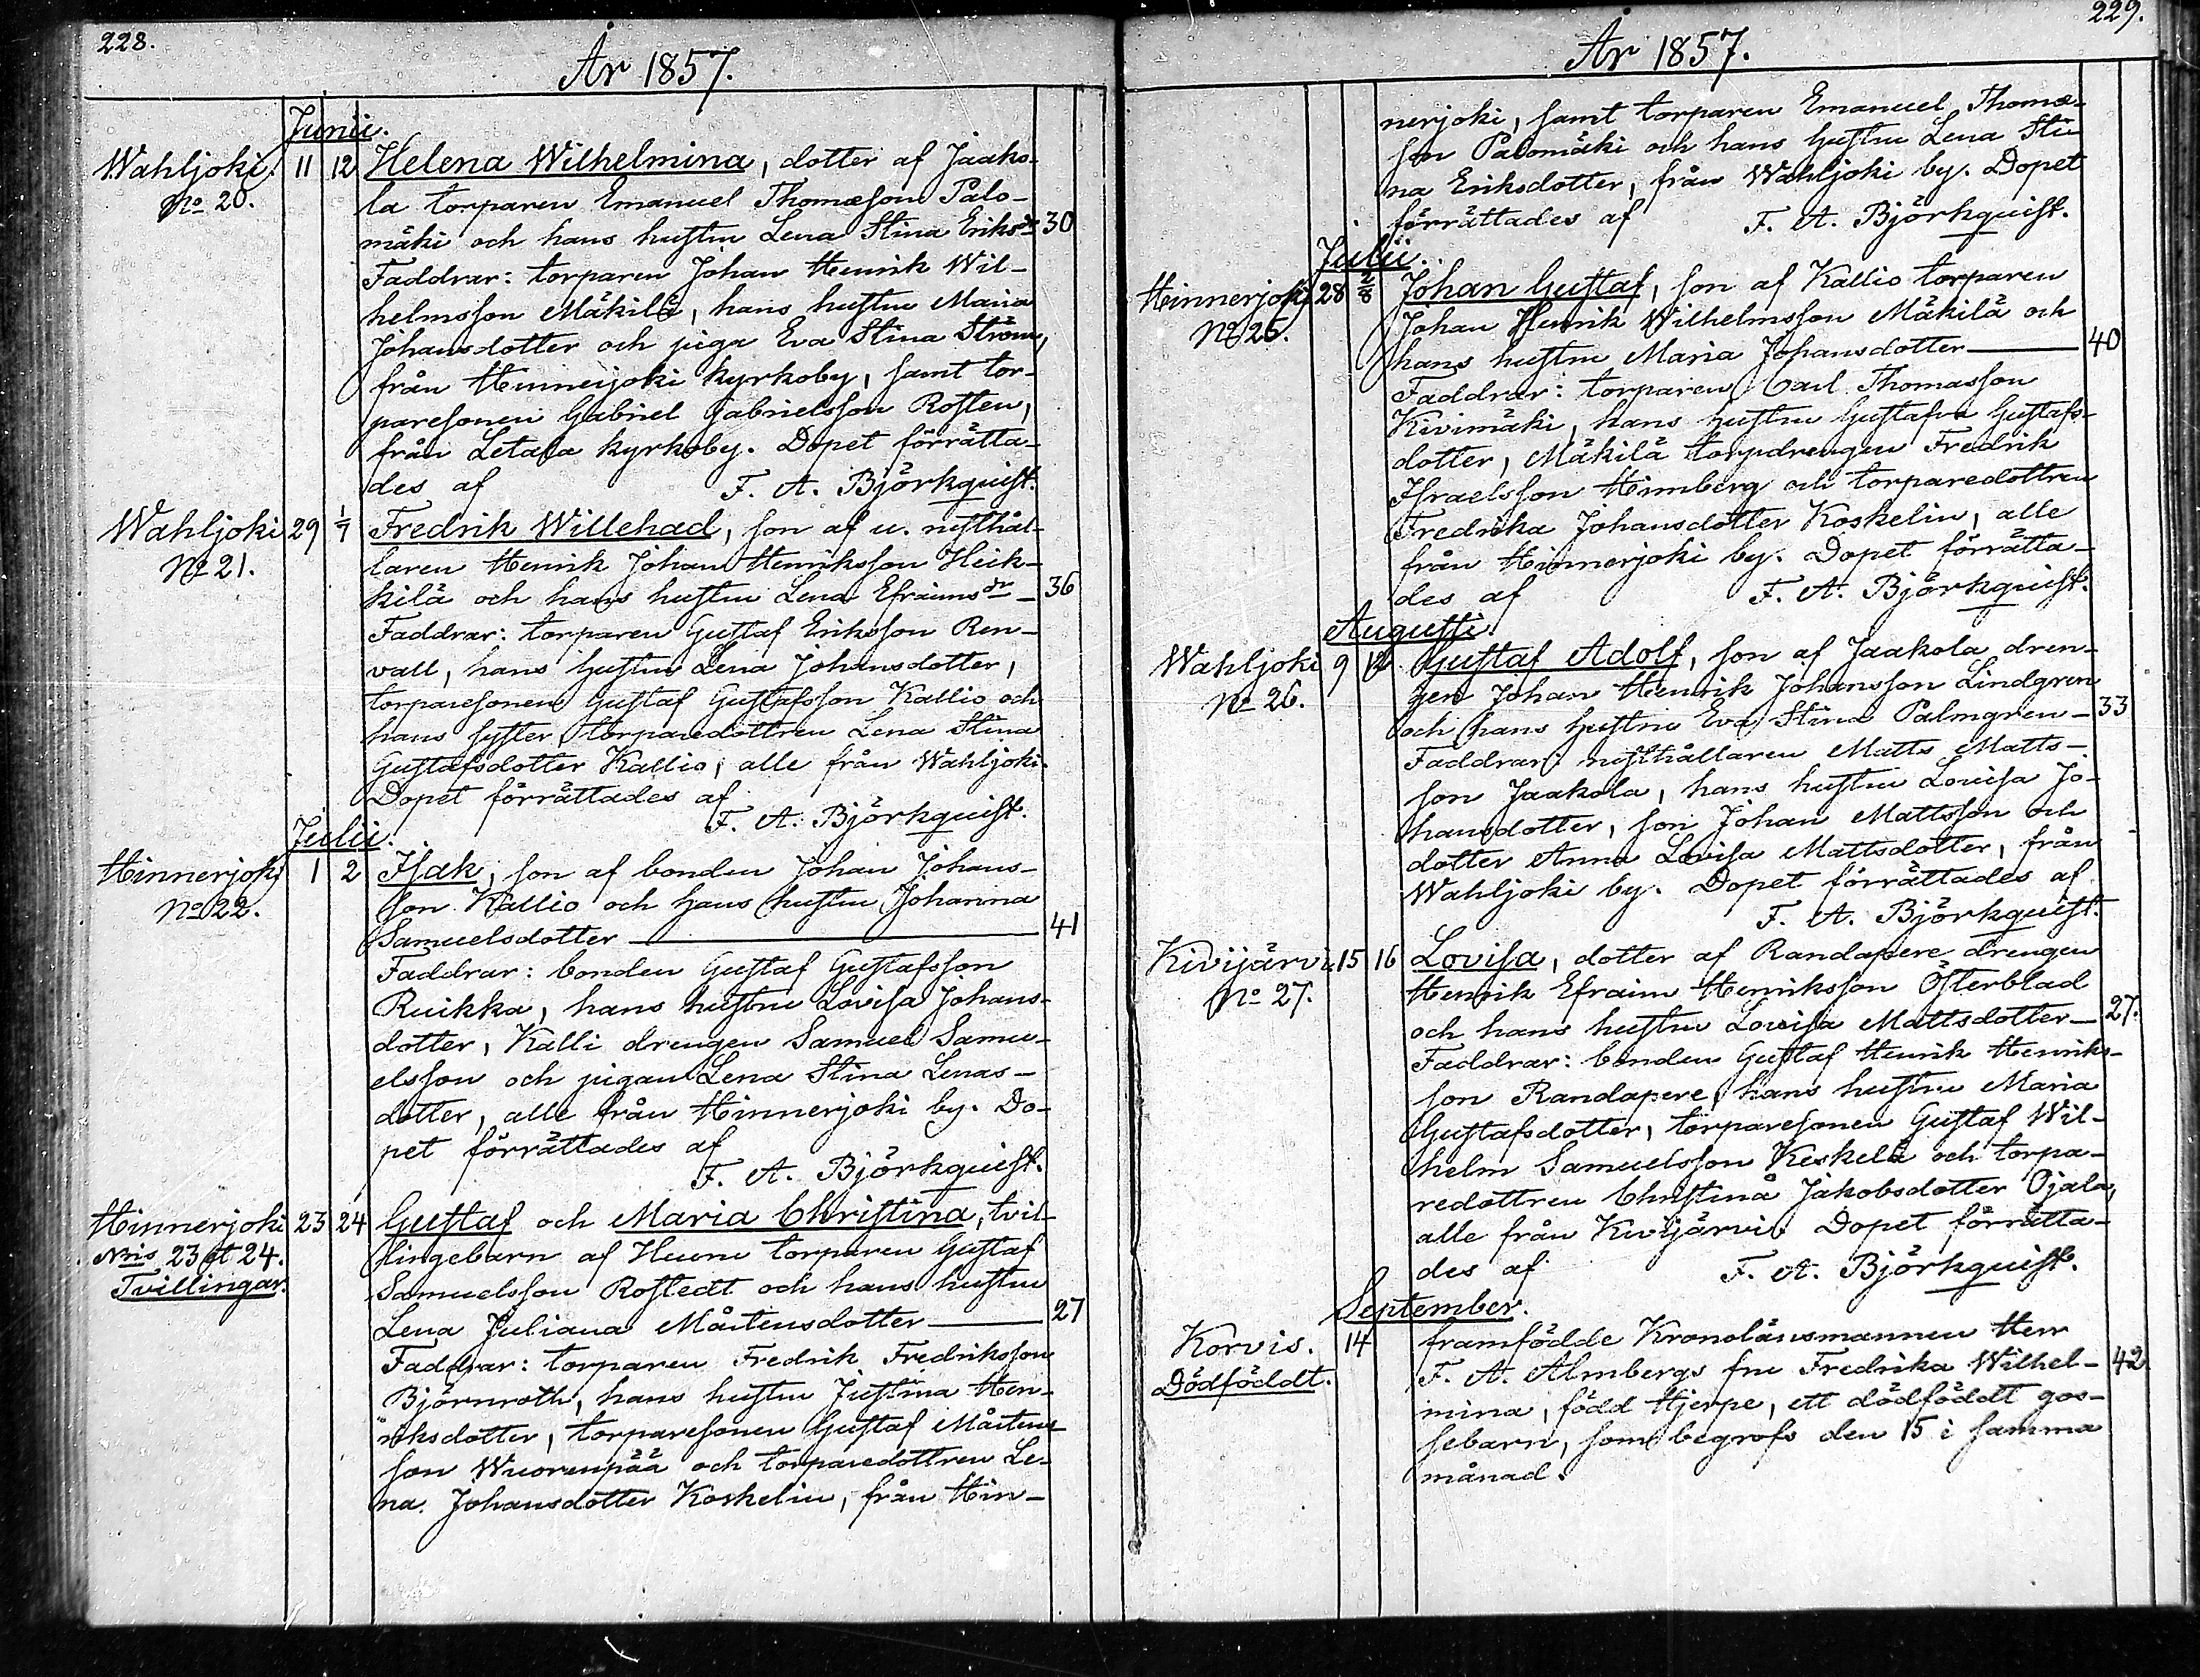 228.
År 1857.
Junii.
Wahljoki 11 12 Helena Wilhelmina, dotter af Jaako-
No 20. la torparen Emanuel Thomæson Palo-
mäki och hans hustru Lena Stina Eriksdr 30
Faddrar: torparen Johan Henrik Wil-
helmsson Mäkilä, hans hustru Maria
Johansdotter och piga Eva Stina Ström,
från Hinnerjoki kyrkoby, samt tor-
paresonen Gabriel Gabrielsson Rosten,
från Letala kyrkoby. Dopet förrätta-
des af F. A. Björkquist.
Wahljoki 29 1/7 Fredrik Willehad, son af u. rusthål-
No 21. laren Henrik Johan Henriksson Heik-
kilä och hans hustru Lena Efraimsdr – 36
Faddrar: torparen Gustaf Eriksson Ren-
vall, hans hustru Lena Johansdotter,
torparesonen Gustaf Gustafsson Kallio och
hans syster, torparedottren Lena Stina
Gustafsdotter Kallio, alle från Wahljoki.
Dopet förrättades af
F. A. Björkquist.
Julii.
Hinnerjoki 1 2 Isak, son af bonden Johan Johans-
No 22. son Kallio och hans hustru Johanna
Samuelsdotter — 41
Faddrar: bonden Gustaf Gustafsson
Ruikka, hans hustru Lovisa Johans-
dotter, Kalli drengen Samuel Samu-
elsson och pigan Lena Stina Lenas-
dotter, alle från Hinnerjoki by. Do-
pet förrättades af
F. A. Björkquist.
Hinnerjoki 23 24 Gustaf och Maria Christina, tvil-
Nris 23 et 24. lingebarn af torparen Gustaf
Tvillingar. Samuelsson Rostedt och hans hustru
Lena Juliana Mårtensdotter — 27
Faddrar: torparen Fredrik Fredriksson
Björnroth, hans hustru Justina Hen-
riksdotter, torparesonen Gustaf Mårtens-
son Wuorenpää och torparedottren Le-
na Johansdotter Koskelin, från Hin-
229.
År 1857.
nerjoki, samt torparen Emanuel Thomæ-
son Palomäki och hans hustru Lena Sti-
na Eriksdotter, från Wahljoki by. Dopet
förrättades af F. A. Björkquist.
Julii.
Hinnerjoki 28 2/8 Johan Gustaf, son af Kallio torparen
No 25. Johan Henrik Wilhelmsson Mäkilä och
hans hustru Maria Johansdotter — 40
Faddrar: torparen Carl Thomasson
Kivimäki, hans hustru Gustafva Gustafs-
dotter, Mäkilä torpdrengen Fredrik
Israelsson Himberg och torparedottren
Fredrika Johansdotter Koskelin, alle
från Hinnerjoki by. Dopet förrätta-
des af F. A. Björkquist.
Augusti.
Wahljoki 9 12 Gustaf Adolf, son af Jaakola dren-
No 26. gen Johan Henrik Johansson Lindgren
och hans hustru Eva Stina Palmgren – 33
Faddrar: rusthållaren Matts Matts-
son Jaakola, hans hustru Lovisa Jo-
hansdotter, son Johan Mattsson och
dotter Anna Lovisa Mattsdotter, från
Wahljoki by. Dopet förrättades af
F. A. Björkquist.
Kivijärvi 15 16 Lovisa, dotter af Randapere drengen
No 27. Henrik Efraim Henriksson Österblad
och hans hustru Lovisa Mattsdotter — 27.
Faddrar: bonden Gustaf Henrik Henriks-
son Randapere, hans hustru Maria
Gustafsdotter, torparesonen Gustaf Wil-
helm Samuelsson Keskelä och torpa-
redottren Christina Jakobsdotter Ojala,
alle från Kivijärvi. Dopet förrätta-
des af F. A. Björkquist.
September.
Korvis. 14 framfödde Kronolänsmannen Herr
Dödföddt. F. A. Almbergs fru Fredrika Wilhel- 42
mina, född Hjerpe, ett dödföddt gos-
sebarn, som begrofs den 15 i samma
månad.